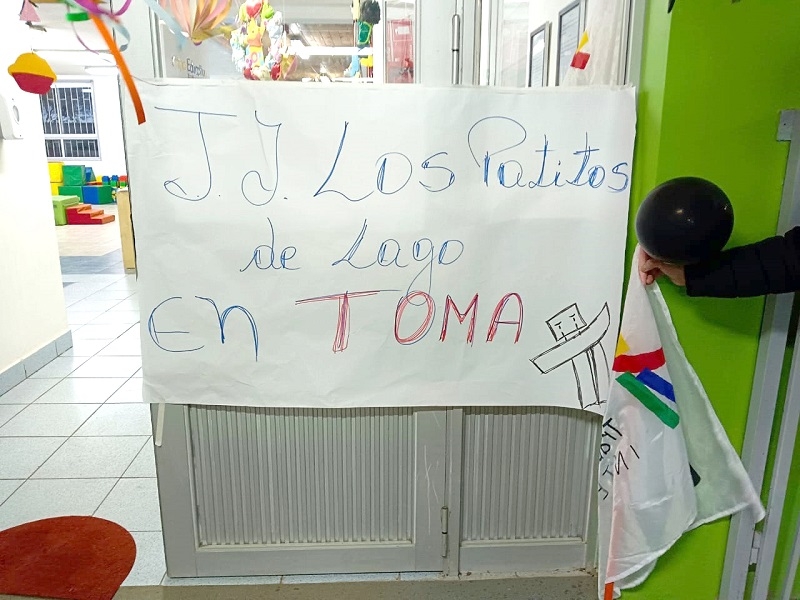 J.J. Los Patitos
de Lago
En TOMA